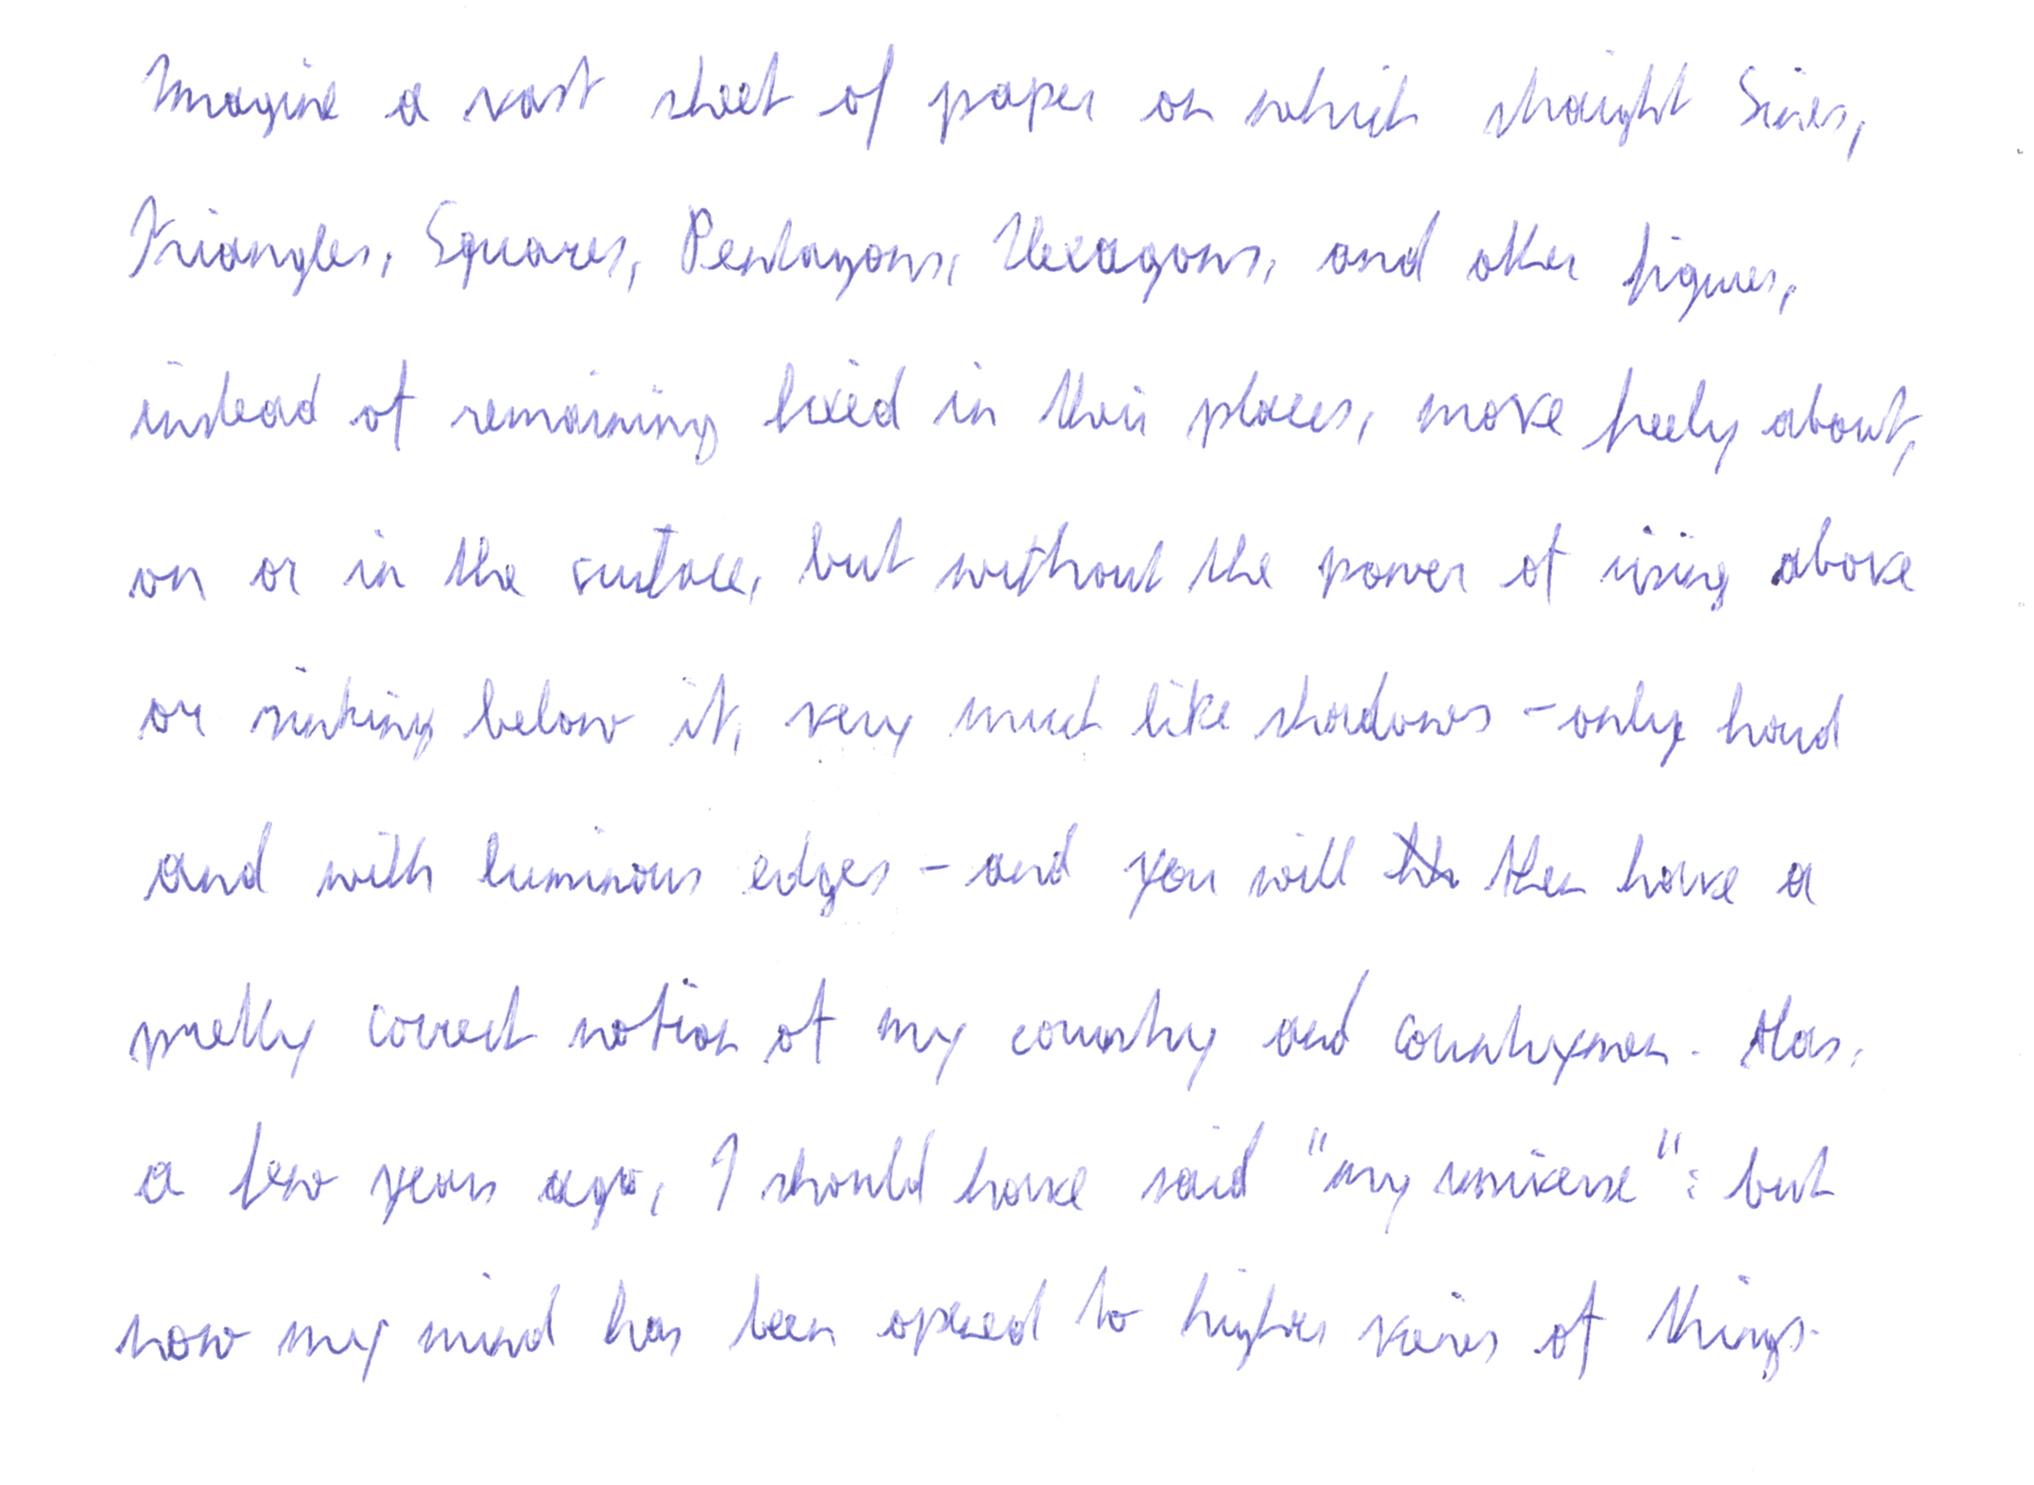 Imagine a vast sheet of paper on which straight Lines,
Triangles, Squares, Pentagons, Hexagons, and other figures,
instead of remaining fixed in their places, move freely about,
on or in the surface, but without the power of rising above
or sinking below it, very much like shadows - only hard
and with luminous edges - and you will then have a
pretty correct notion of my country and countrymen. Alas,
a few years ago, I should have said "my universe": but
now my mind has been opened to higher views of things.